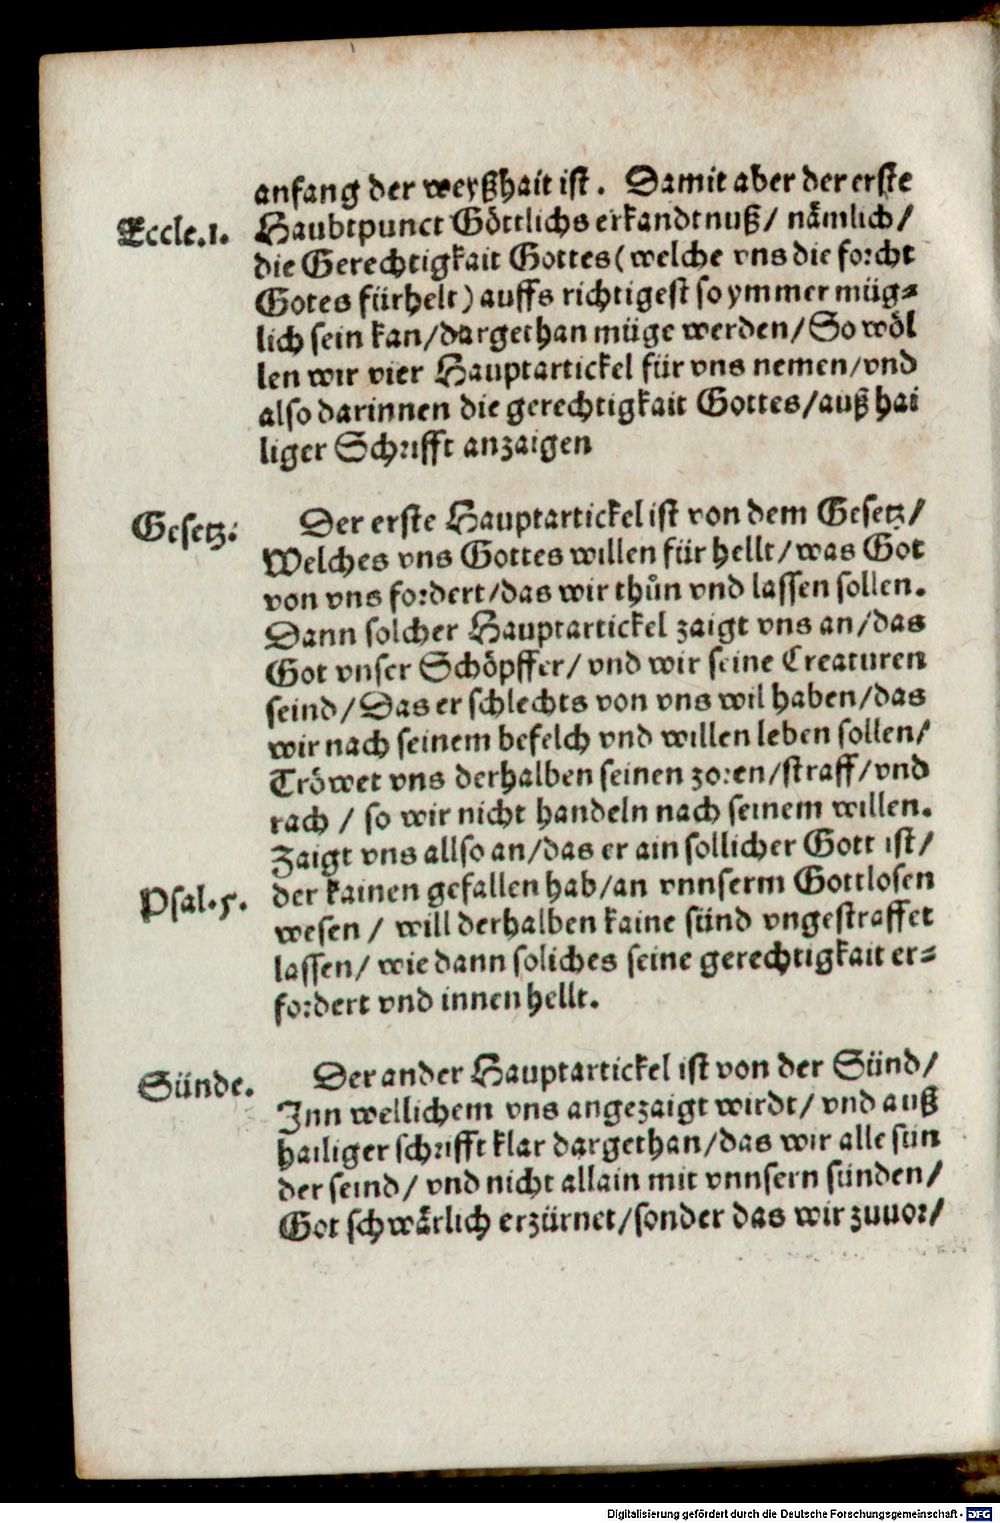 anfang der weyßhait ist. Damit aber der erste
Eccle.1.
Haubtpunct Göttlichs erkandtnuß/ nämlich/
die Gerechtigkait Gottes (welche vns die forcht
Gotes fürhelt) auffs richtigest so ymmer müg⸗
lich sein kan/dargethan müge werden/So wöl
len wir vier Hauptartickel für vns nemen/vnd
also darinnen die gerechtigkait Gottes/auß hai
liger Schrifft anzaigen
Gesetz.
Der erste Hauptartickel ist von dem Gesetz/
Welches vns Gottes willen für hellt/was Got
von vns fordert/das wir thůn vnd lassen sollen.
Dann solcher Hauptartickel zaigt vns an/das
Got vnser Schöpffer/ vnd wir seine Creaturen
seind/Das er schlechts von vns wil haben/das
wir nach seinem befelch vnd willen leben sollen/
Tröwet vns derhalben seinen zoren/straff/vnd
rach / so wir nicht handeln nach seinem willen.
Zaigt vns allso an/das er ain sollicher Gott ist/
Psal.5.
der kainen gefallen hab/an vnnserm Gottlosen
wesen / will derhalben kaine sünd vngestraffet
lassen/ wie dann soliches seine gerechtigkait er⸗
fordert vnd innen hellt.
Sünde.
Der ander Hauptartickel ist von der Sünd/
Inn wellichem vns angezaigt wirdt/ vnd auß
hailiger schrifft klar dargethan/das wir alle sün
der seind/ vnd nicht allain mit vnnsern sünden/
Got schwärlich erzürnet/sonder das wir zuuor/
Digitalisierung gefördert durch die Deutsche Forschungsgemeinschaft - DFG